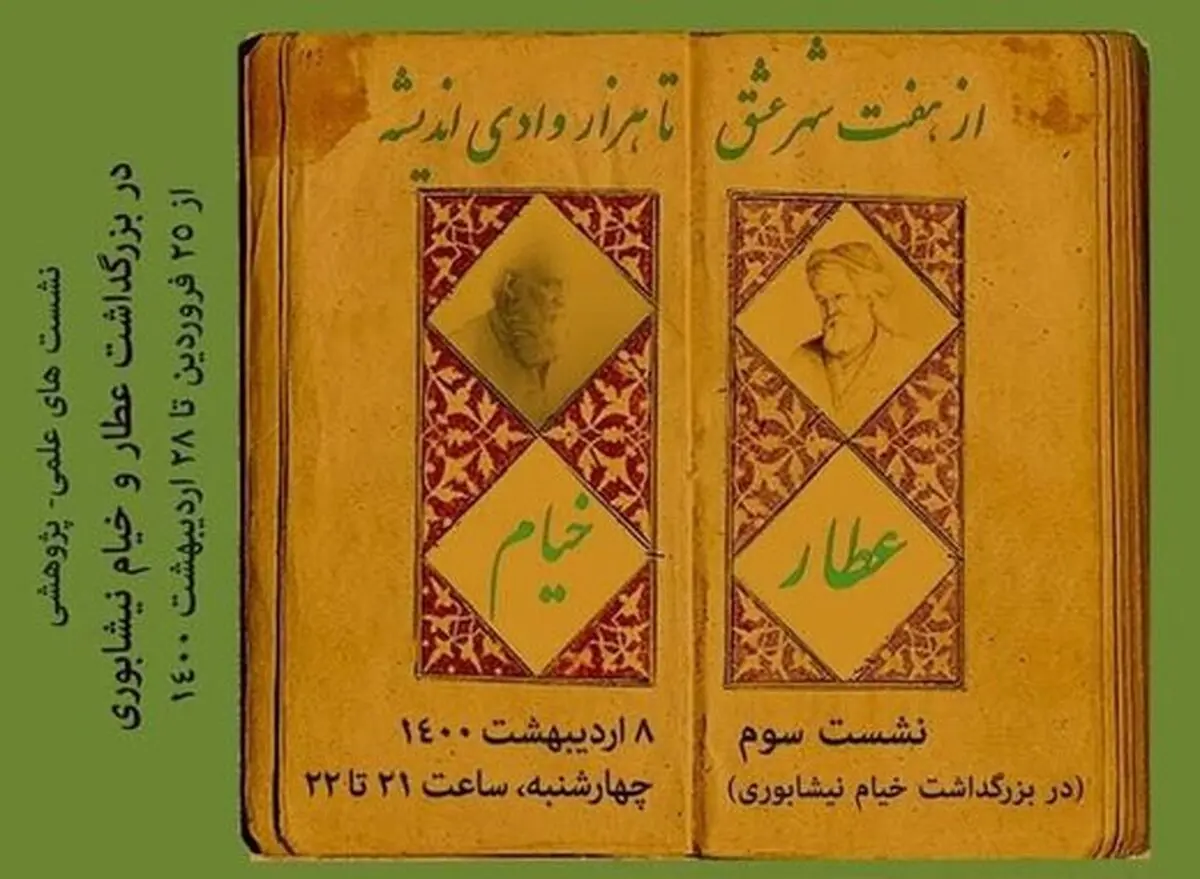 از هفت شهر عشق تا هزار وادی اندیشه
عطار
خیام
نشست سوم
(در بزرگداشت خیام نیشابوری)
۸ اردیبهشت ۱٤۰۰
چهارشنبه، ساعت ۲۱ تا ۲۲
نشست های علمی- پژوهشی
در بزرگداشت عطار و خیام نیشابوری
از ۲۵ فروردین تا ۲۸ اردیبهشت ۱٤۰۰